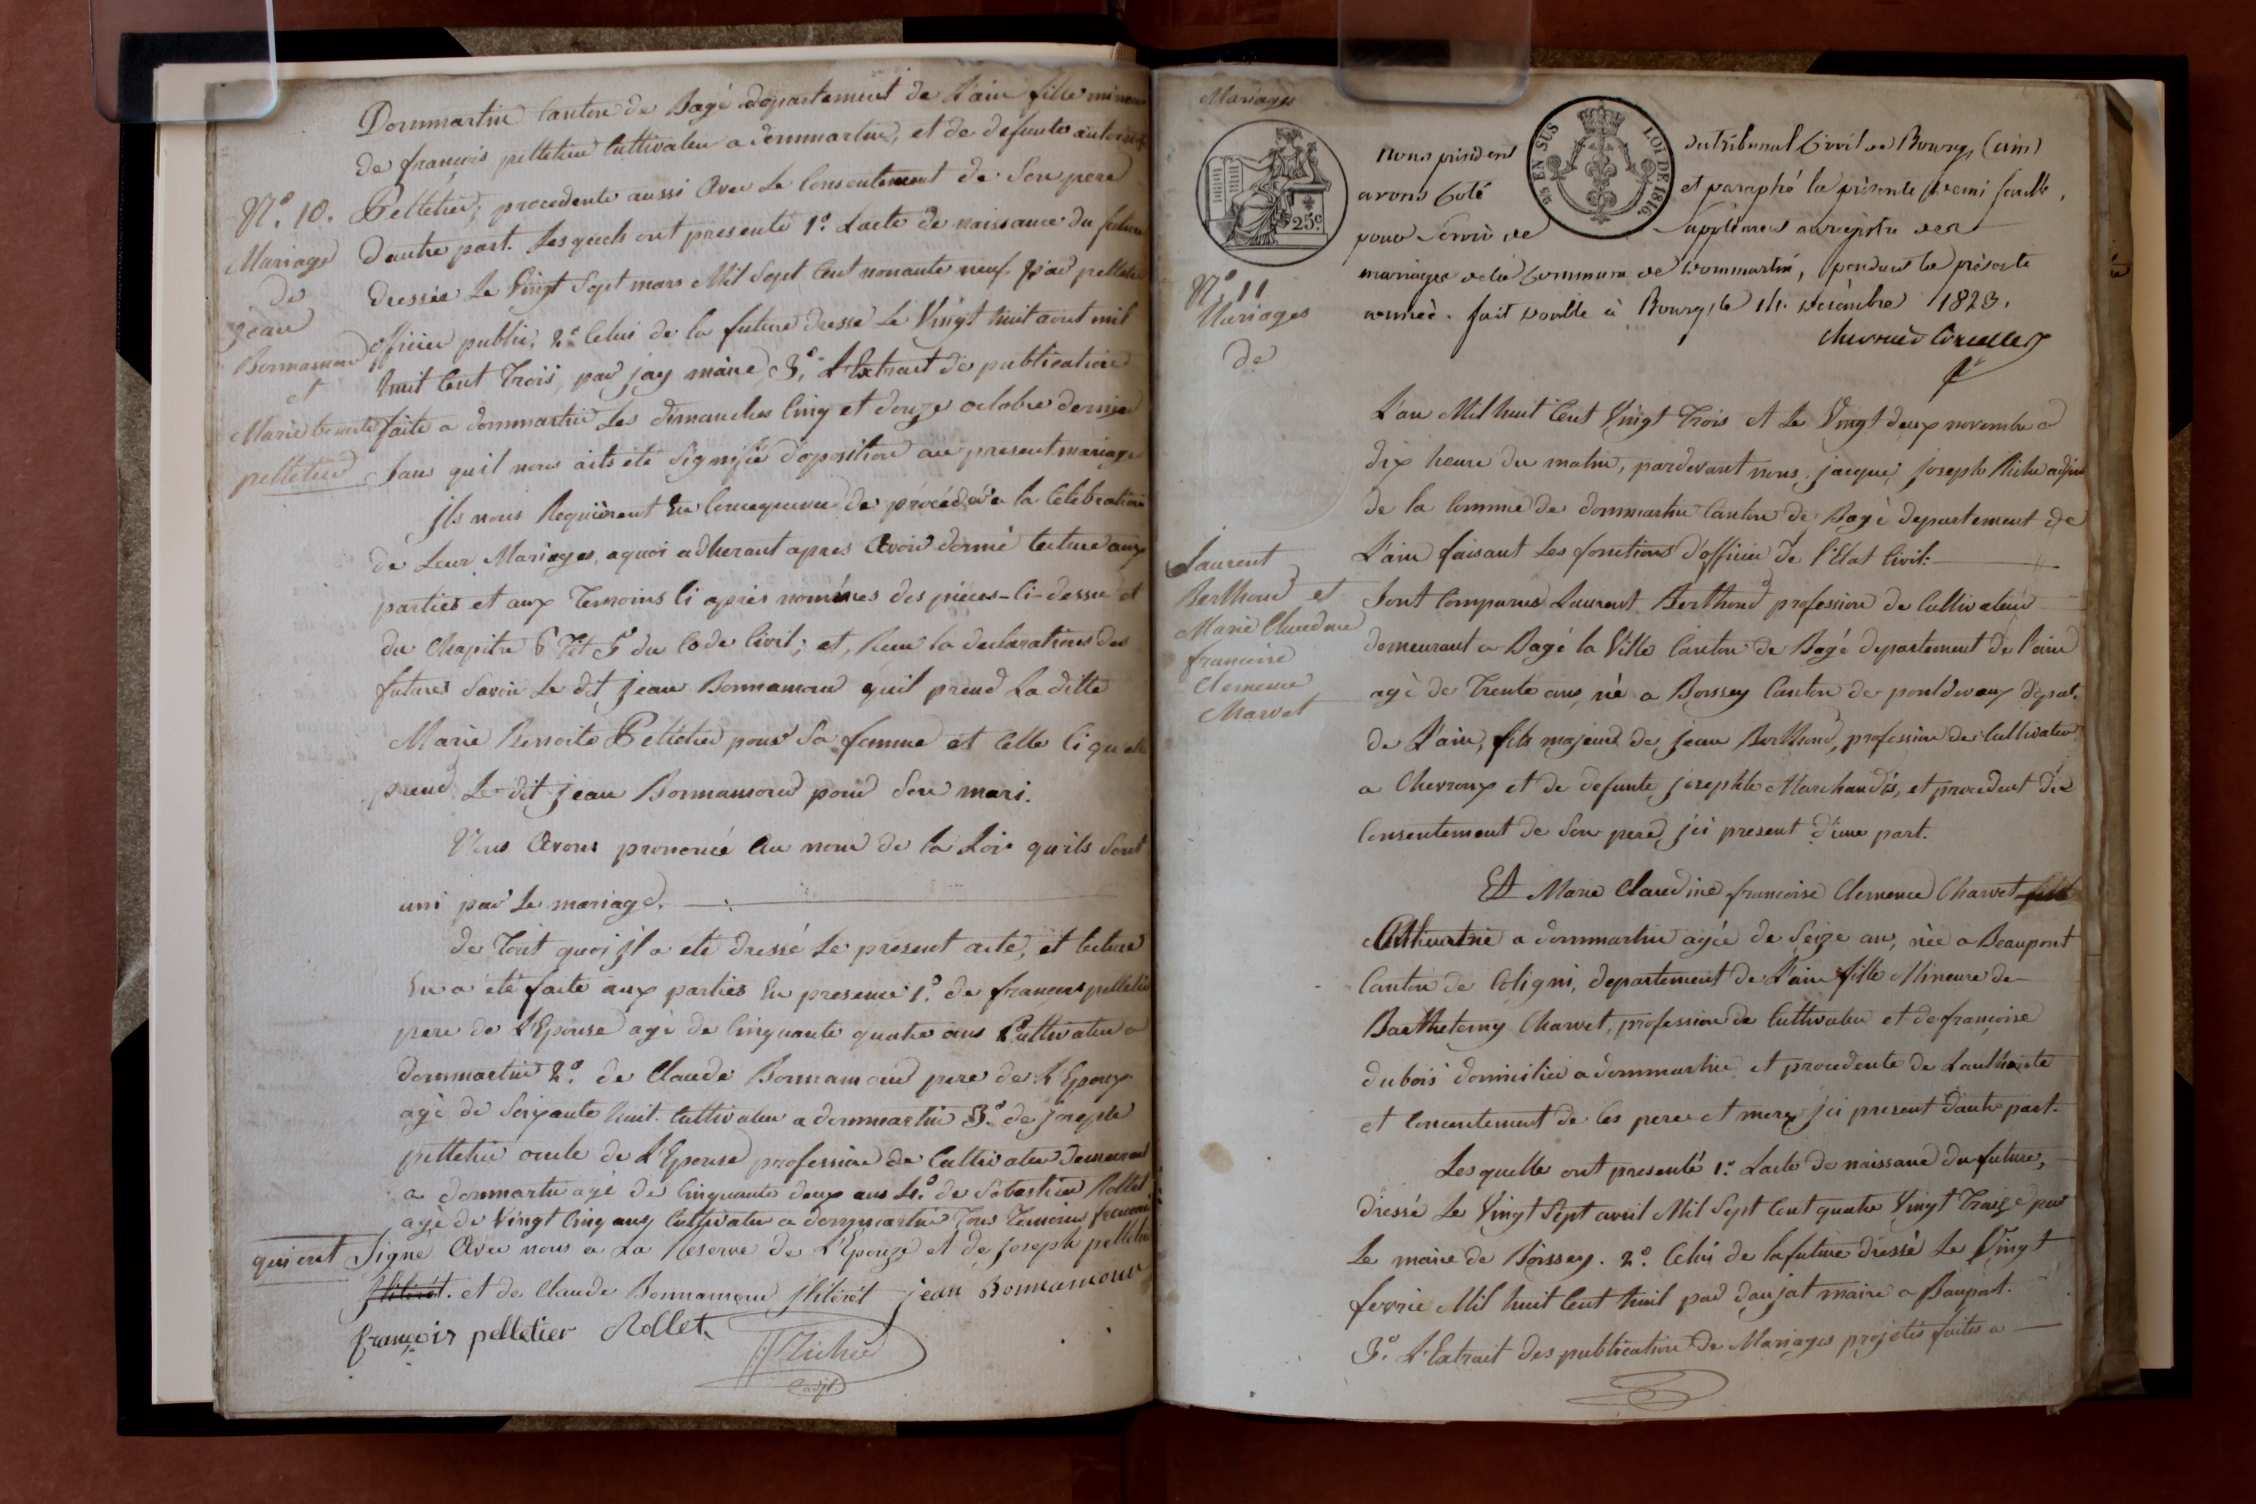 Dommartin Canton de Bagé departement de L'ain fille mineure
de françois pelletier Cultivateur a dommartin, et de defunte
N.o 10. Pelletier, procedente aussi Avec Le Consentement de Son pere
Mariage
de
jean
Bonnamour
et
Marie benoite
pelletier
d'autre part. Lesquels ont presenté 1.o L'acte de naissance du futur
dressée Le Vingt Sept mars Mil Sept Cent nonante neuf. par pelletier
officier public, 2.o Celui de la future dressé Le Vingt huit aout mil
huit Cent Trois, par jay maire 3.o L'Extrait de publication
faite a dommartin Les dimanches Cinq et douze octobre dernier
Sans quil nous aits eté Signifié d'oposition au present mariage
jls nous Requièrent En Consequence de procéder a la Celebration
de Leur Mariage, aquoi adherant apres Avoir donné Lecture aux
parties et aux Temoins Ci après nommées des pieces-Ci-dessu et
du Chapitre 6 Tit 5 du Code Civil; et, Recu la declarations des
futures Savoir Le dit jean Bonnamour quil prend La ditte
Marie Benoite Pelletier pour Sa femme et Celle Ci quelle
prend Le dit jean Bonnamour pour Son mari.
Nous Avons prononcé Au nom de la Loi quils Sont
uni par Le mariage.
de Tout quoi jl a eté dressé Le present acte, et lecture
En a été faite aux parties En presence 1.o de françois pelletier
pere de L'Epouse agé de Cinquante quatre ans Cultivateur a
dommartin 2.o de Claude Bonnamour pere de L'Epoux
agé de Soixante huit Cultivateur a dommartin 3.o de joseph
pelletier oncle de L'Epouse profession de Cultivateur demeurant
a dommartin agé de Cinquante deux ans 4.o de Sebastien Rollet
agé de Vingt Cinq ans Cultivateur a dommartin Tous Temoins
qui ont Signé Avec nous a La Reserve de L'Epouze et de joseph pelletier
jlliterét. et de Claude Bonnamour jlliterét jean Bonnamour
françois pelletier Rollet
Richer
adjt
Mariages
25c
EN SUS
LOI DE 1816.
nous président du tribunal Civil de Bourg, (ain)
avons Coté et paraphé la présente demi feuille,
pour Servir de Supplément au registre des
mariages de la Commune de Dommartin, pendant la présente
année. fait double à Bourg, le 14. décembre 1823.
N.o 11
Mariages
de
L'an Mil huit Cent Vingt Trois et Le Vingt deux novembre a
dix heure du matin, pardevant nous jacque joseph Richer adjoint
de la Commune de dommartin Canton de Bagé departement de
L'ain faisant Les fonctions d'officier de l'Etat Civil:
Laurent
Berthoud et
Marie Claudine
francoise
Clemence
Charvet
Sont Comparus Laurent Berthoud profession de Cultivateur
demeurant a Bagé la Ville Canton de Bagé departement de l'ain
agé de Trente ans, né a Boissey Canton de pontdevaux depart.
de L'ain, fils majeur de jean Berthoud, profession de Cultivateur
a Chevroux et de defunte josephte Marchandis, et procedant du
Consentement de Son pere jci present d'une part.
Et Marie Claudine francoise Clemence Charvet fille
Cultivatrice a dommartin agée de Seize an, née a Beaupont
Canton de Coligni, departement de L'ain fille Mineure de
Barthelemy Charvet, profession de Cultivateur et de françoise
dubois domicilié a dommartin et procedente de L'authorité
et Consentement de Ces pere et mere jci present d'autre part.
Lesquelle ont presenté 1.o L'acte de naissance du future,
dressé Le Vingt Sept avril Mil Sept Cent quatre Vingt Traize par
Le maire de Boissey. 2.o Celui de la future dressé Le Vingt
fevrie Mil huit Cent huit par daujat maire a Baupont.
3.o L'Extrait des publication de Mariages projetés faites a